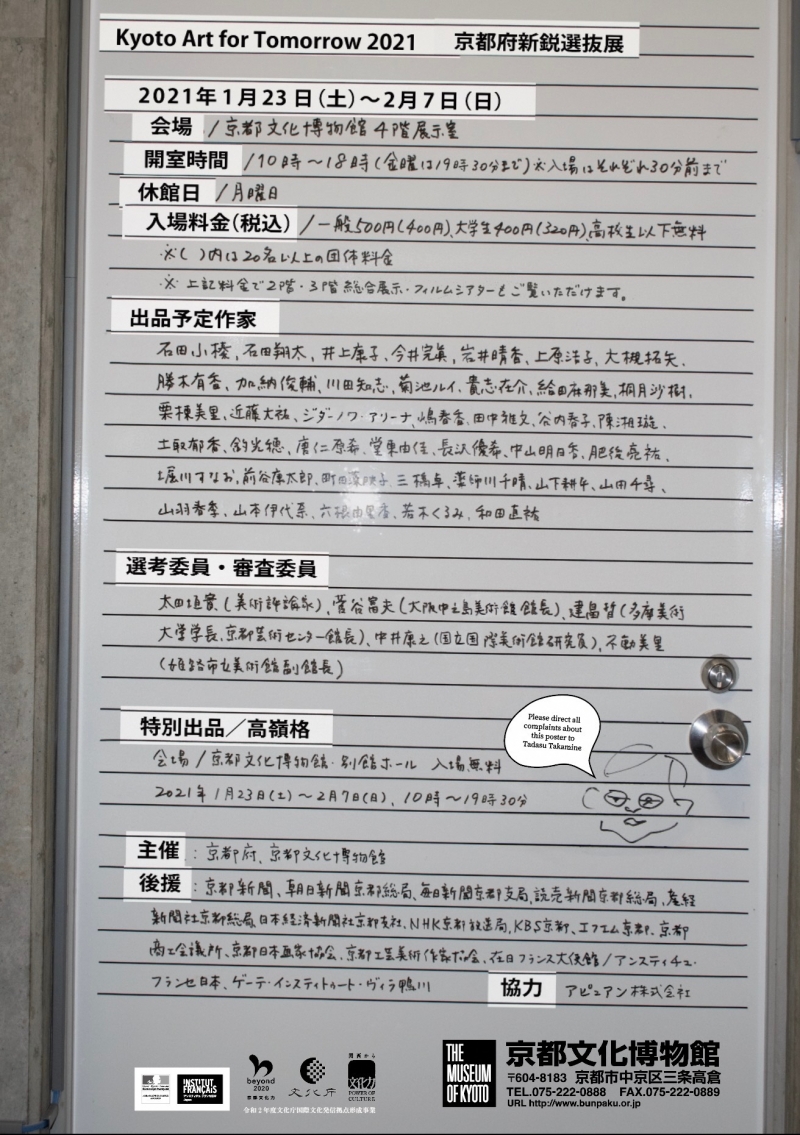 Kyoto Art for Tomorrow 2021 京都府新鋭選抜展
2021年1月23日(土)～2月7日(日)
会場 /京都文化博物館 4階展示室
開室時間 /10時～18時(金曜は19時30分まで)※入場はそれぞれ30分前まで
休館日 /月曜日
入場料金(税込) /一般500円(400円)、大学生400円(320円)、高校生以下無料
※( )内は20名以上の団体料金
※上記料金で2階・3階総合展示・フィルムシアターもご覧いただけます。
出品予定作家
石田小榛、石田翔太、井上康子、今井完眞、岩井晴香、上原浩子、大槻拓矢、
勝木有香、加納俊輔、川田知志、菊池ルイ、貴志在介、給田麻那美、桐月沙樹、
栗棟美里、近藤大祐、ジダーノワ・アリーナ、嶋春香、田中雅文、谷内春子、陳湘璇、
土取郁香、釣光穂、唐仁原希、堂東由佳、長沢優希、中山明日香、肥後亮祐、
堀川すなお、前谷康太郎、町田 三橋卓、薬師川千晴、山下耕平、山田千尋、
山羽春季、山本伊代菜、六根由里香、若木くるみ、和田直祐
選考委員・審査委員
太田垣實(美術評論家)、菅谷富夫(大阪中之島美術館館長)、建畠晢(多摩美術
大学学長、京都芸術センター館長)、中井康之(国立国際美術館研究員)、不動美里
(姫路市立美術館副館長)
特別出品／高嶺格
会場/京都文化博物館・別館ホール 入場無料
2021年1月23日(土)～2月7日(日)、10時～19時30分
Please direct all
complaints about
this poster to
Tadasu Takamine
主催:京都府、京都文化博物館
後援:京都新聞、朝日新聞京都総局、毎日新聞京都支局、読売新聞京都総局、産経
新聞社京都総局、日本経済新聞社京都支社、NHK京都放送局、KBS京都、エフエム京都、京都
商工会議所、京都日本画家協会、京都工芸美術作家協会、在日フランス大使館/アンスティチュ・
フランセ日本、ゲーテ・インスティトゥート・ヴィラ鴨川 協力 アピュアン株式会社
INSTITUT
FRANÇAIS
beyond
2020
京都文化力
文化庁
関西から
文化力
POWER OF
CULTURE
令和2年度文化庁国際文化発信拠点形成事業
THE
MUSEUM
OF KYOTO
京都文化博物館
〒604-8183 京都市中京区三条高倉
TEL.075-222-0888 FAX.075-222-0889
URL http://www.bunpaku.or.jp